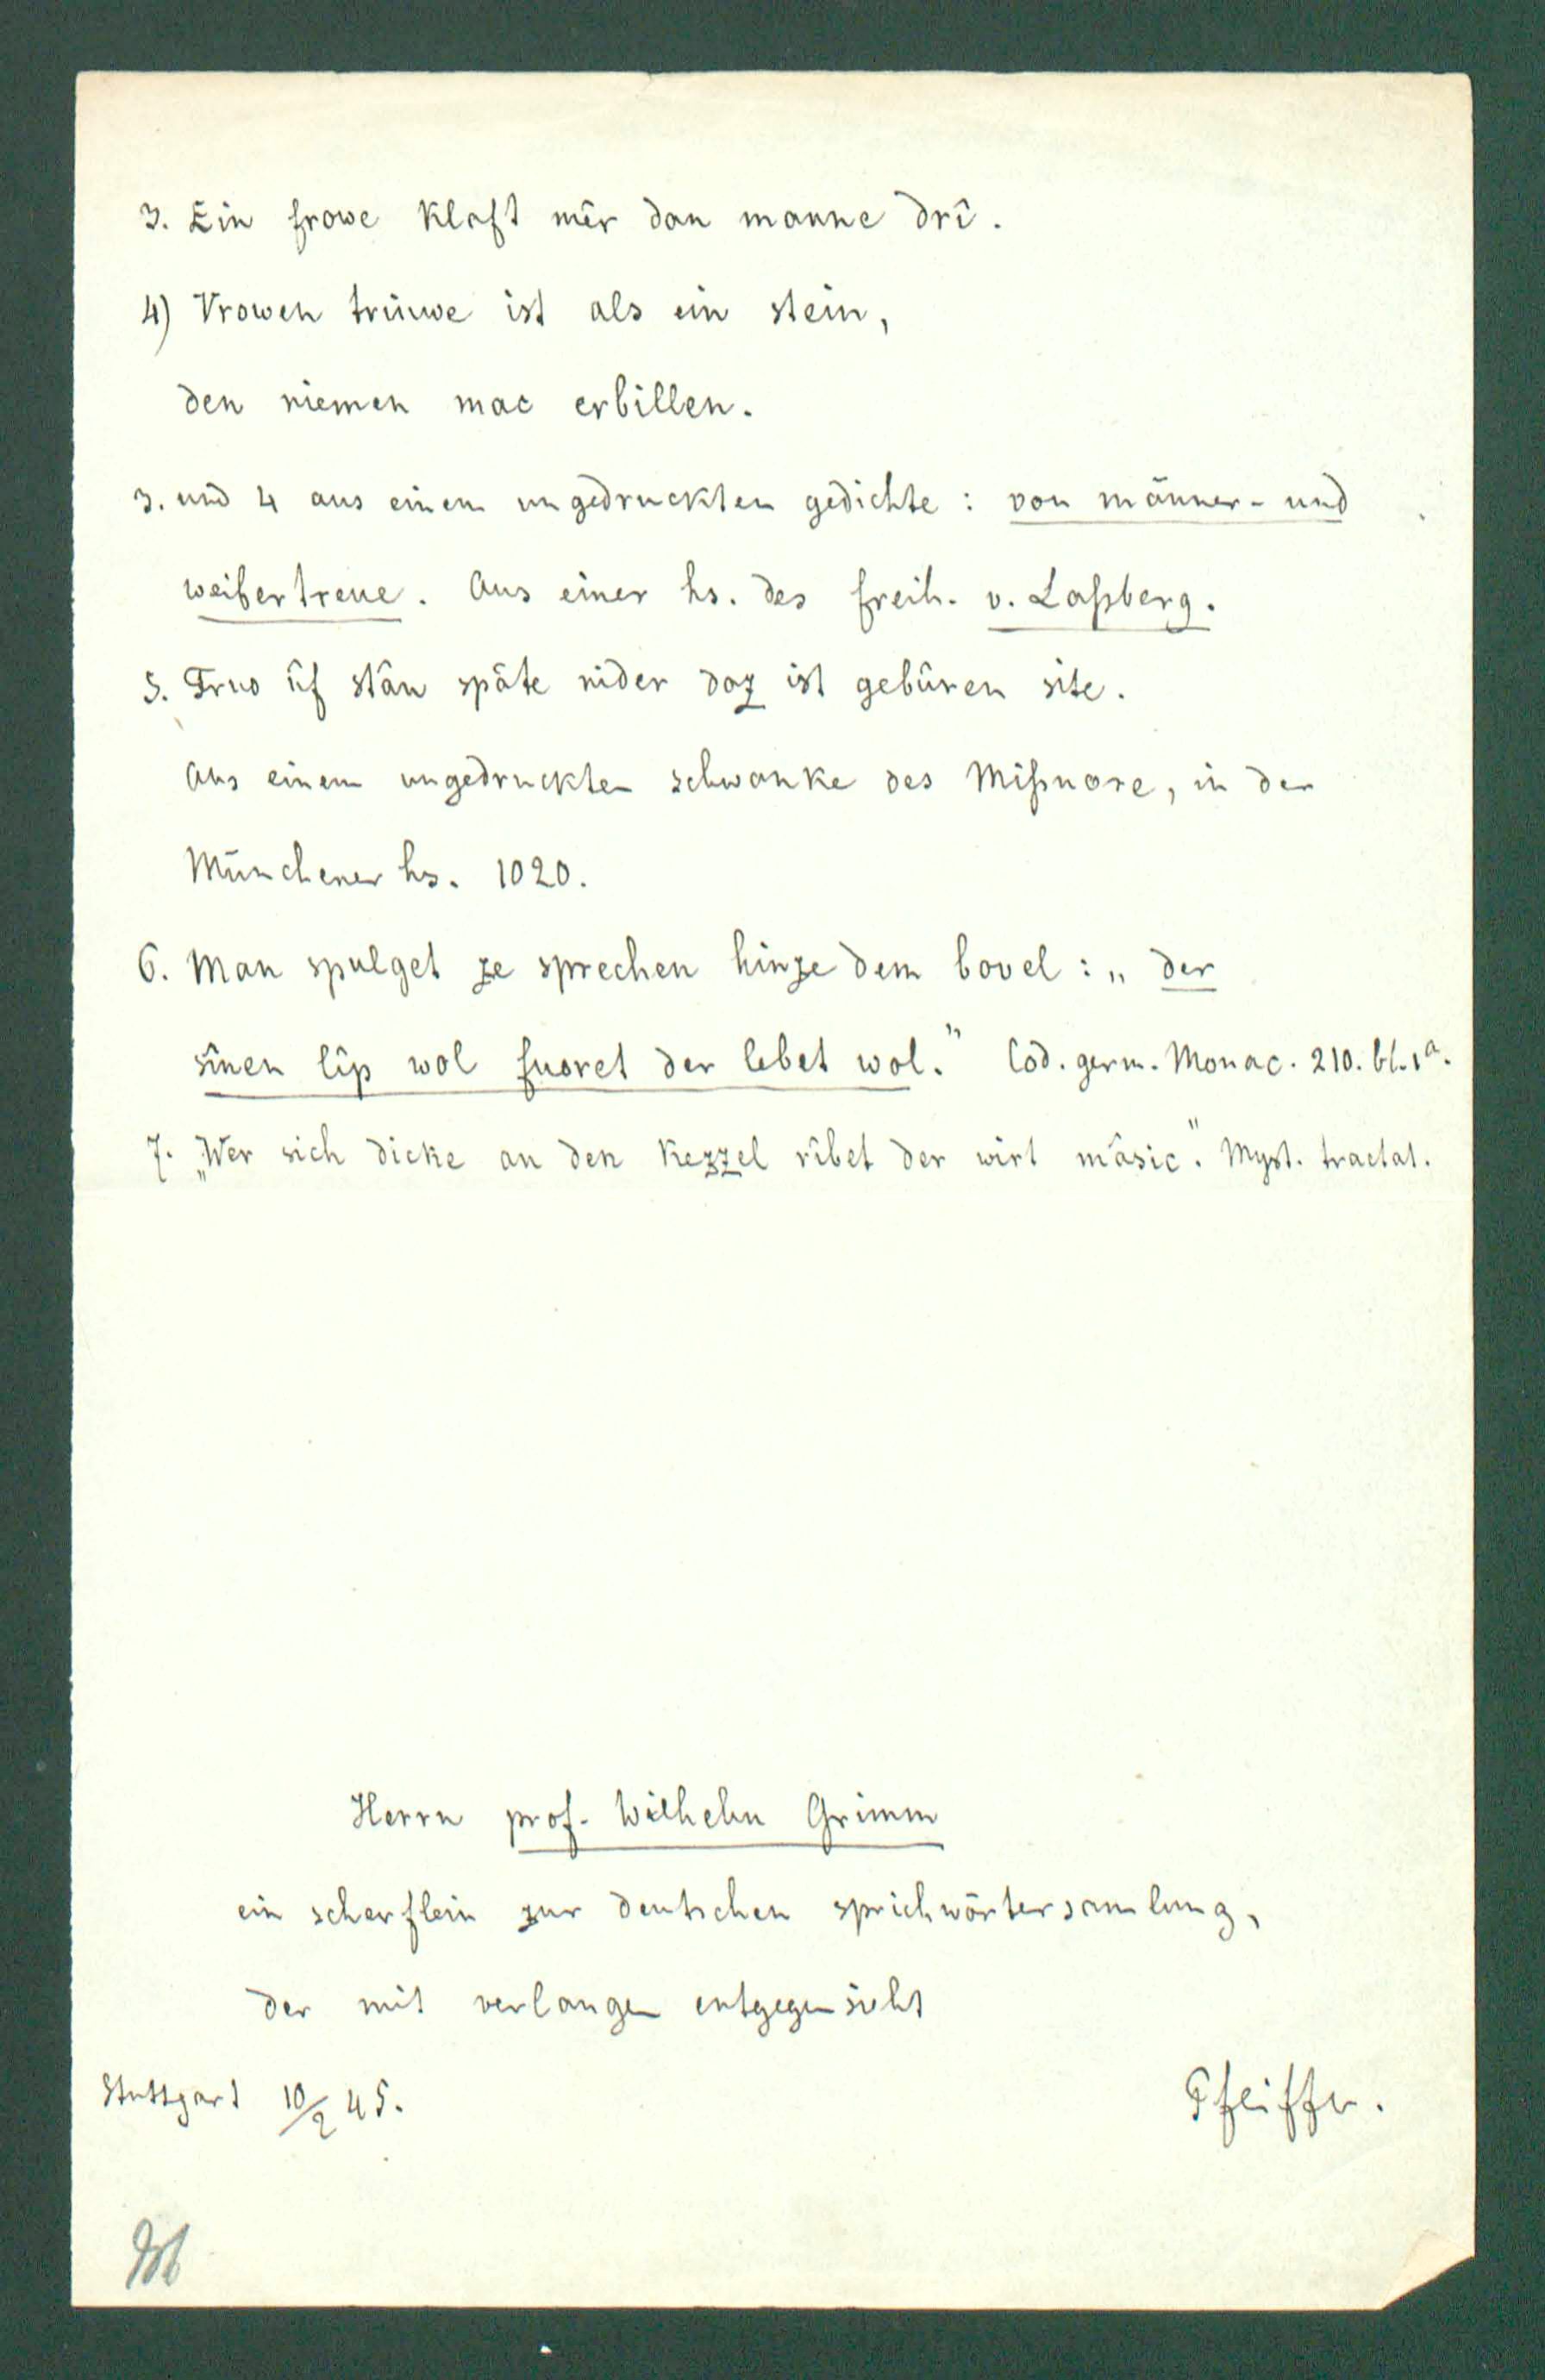 3. Ein frowe klaft mêr dan manne drî.
4) Vrowen triuwe ist als ein stein,
den niemen mac erbillen.
3. und 4 aus einem ungedruckten gedichte: von männer- und
weibertreue. Aus einer hs. des freih. v. Laßberg.
5. Fruo ûf stân spâte nider daz ist gebûren site.
Aus einem ungedruckten schwanke des Mißnære, in der
Münchener hs. 1020.
6. Man spulget ze sprechen hinze dem bovel: „der
sînen lîp wol fuoret der lebet wol." Cod. germ. Monac. 210. bl. 1a.
7. „Wer sich dicke an den kezzel rîbet der wirt mâsic". Myst. tractat.
Herrn prof. Wilhelm Grimm
ein scherflein zur deutschen sprichwörtersamlung,
der mit verlangen entgegensieht
Stuttgart 10/2 45. Pfeiffer.